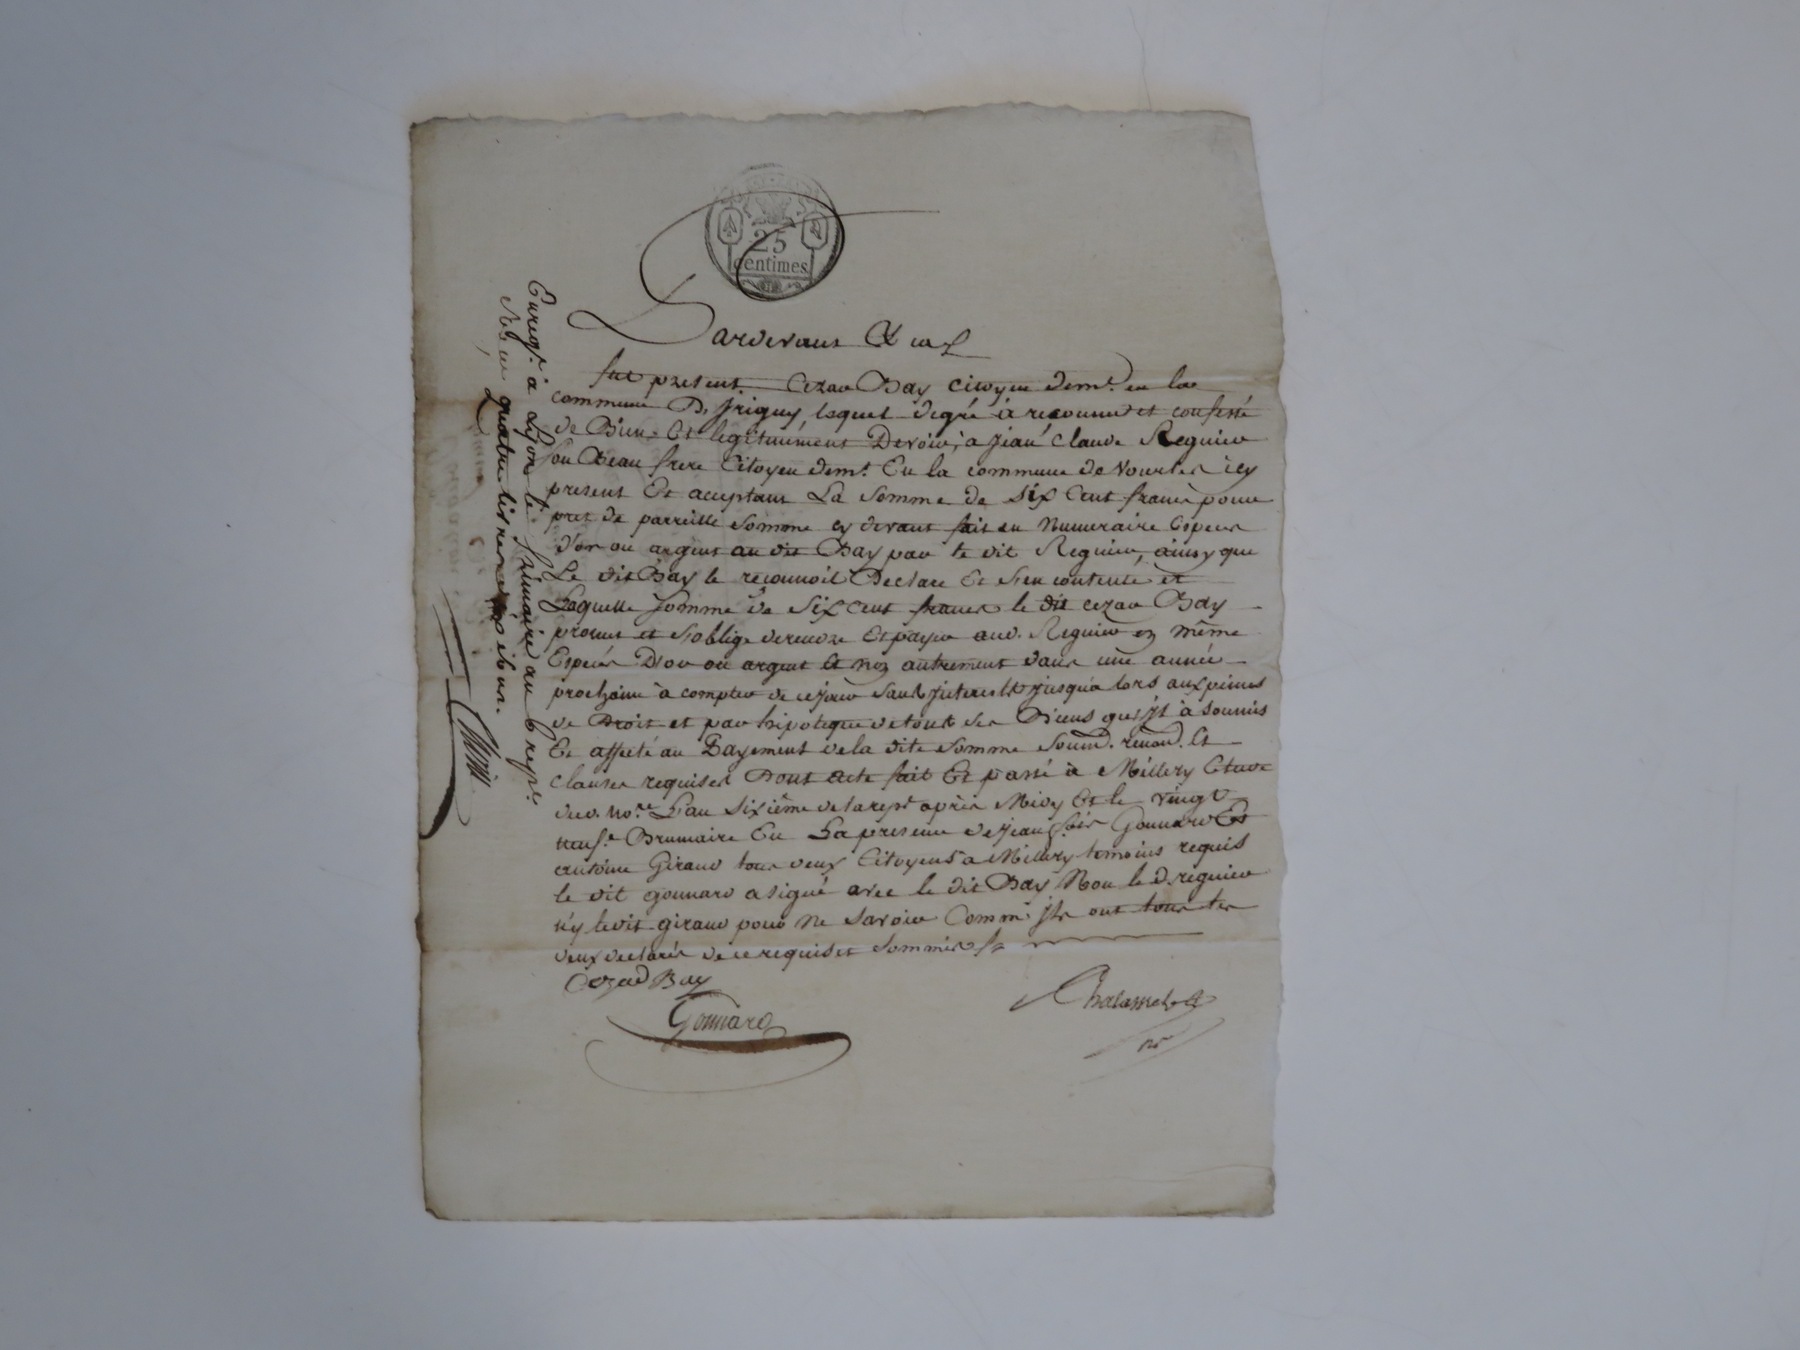 25
centimes
Pardevant &ca
fut present Cezar Bay Citoyen demt. en la
commune D'jriguy, lequel degré à reconnu et confessé
de Bien Et legitimément Devoir, a jean Claude Reguier
son Beau frere Citoyen demt. En la commune de Vourles icy
present Et acceptant La somme de six Cent francs pour
pret de parreille somme cy devant fait en Numeraire Especes
d'or ou argent au dit Bay par le dit Reguier, ainsy que
Le dit Bay le reconnoit Declare Et s'en contente et
Laquelle somme de six cent francs le dit cezar Bay
promet et s'oblige de rendre Et payer aud. Reguier en même
Especes D'or ou argent et non autrement dans une année
prochaine à compter de ce jour sans jnterest jusqu'a lors aux peines
de Droit et par hipoteque de tout ses Biens qu'jl à soumis
Et affecté au Payement de la dite somme soumd. renond. Et
clauses requises Dont acte fait Et passé à Millery Etude
dud. nore. L'an sixième de la repe après Midy Et le vingt
neufe Brumaire En La presence de jean fois Gonnard Et
antoine Giraud tous deux Citoyens a Millery temoins requis
le dit gonnard a signé avec le dit Bay Non le d. reguier
n'y le dit giraud pour ne savoir Comm' jls ont tous les
deux declarés de ce requis et sommés
Cezard Bay
Gonnard
Chalamel
nre
Enregt. à Lyon le frimaire an 6 repe.
Reçu quatre